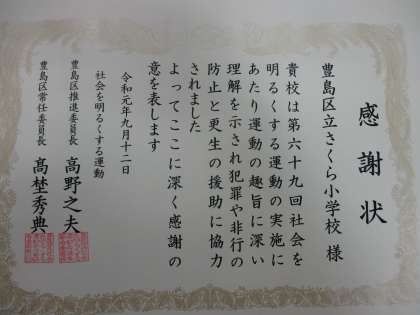 感謝状
豊島区立さくら小学校 様
貴校は第六十九回社会を
明るくする運動の実施に
あたり運動の趣旨に深い
理解を示され犯罪や非行の
防止と更生の援助に協力
されました
よってここに深く感謝の
意を表します
令和元年九月十二日
社会を明るくする運動
豊島区推進委員長 高野之夫
豊島区常任委員長 髙埜秀典